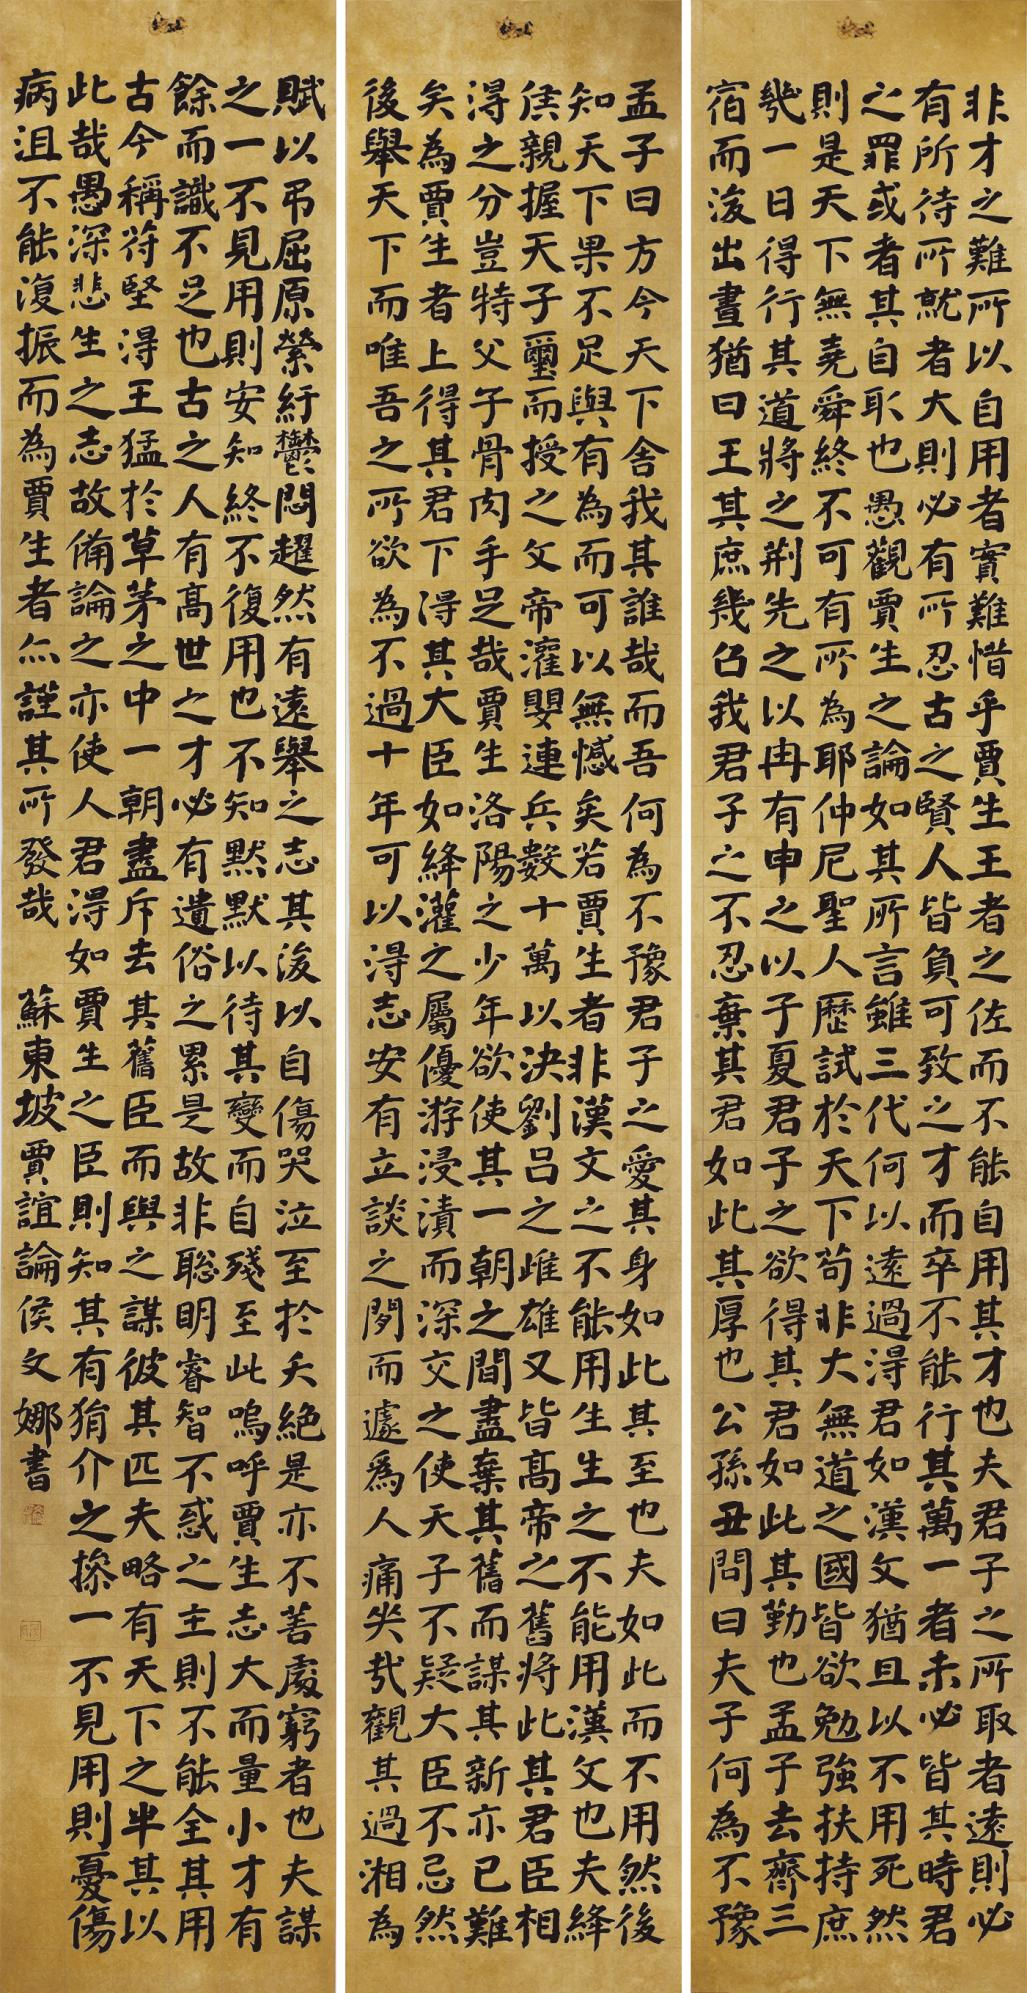 非才之難所以自用者實難惜乎賈生王者之佐而不能自用其才也夫君子之所取者遠則必
有所待所就者大則必有所忍古之賢人皆負可致之才而卒不能行其萬一者未必皆其時君
之罪或者其自取也愚觀賈生之論如其所言雖三代何以遠過得君如漢文猶且以不用死然
則是天下無堯舜終不可有所為耶仲尼聖人歷試於天下苟非大無道之國皆欲勉強扶持庶
幾一日得行其道將之荊先之以冉有申之以子夏君子之欲得其君如此其勤也孟子去齊三
宿而後出晝猶曰王其庶幾召我君子之不忍棄其君如此其厚也公孫丑問曰夫子何為不豫
孟子曰方今天下舍我其誰哉而吾何為不豫君子之愛其身如此其至也夫如此而不用然後
知天下果不足與有為而可以無憾矣若賈生者非漢文之不能用生生之不能用漢文也夫絳
侯親握天子璽而授之文帝灌嬰連兵數十萬以決劉呂之雌雄又皆高帝之舊將此其君臣相
得之分豈特父子骨肉手足哉賈生洛陽之少年欲使其一朝之間盡棄其舊而謀其新亦已難
矣為賈生者上得其君下得其大臣如絳灌之屬優游浸漬而深交之使天子不疑大臣不忌然
後舉天下而唯吾之所欲為不過十年可以得志安有立談之間而遽為人痛哭哉觀其過湘為
賦以弔屈原縈紆鬱悶趯然有遠舉之志其後以自傷哭泣至於夭絕是亦不善處窮者也夫謀
之一不見用則安知終不復用也不知默默以待其變而自殘至此嗚呼賈生志大而量小才有
餘而識不足也古之人有高世之才必有遺俗之累是故非聰明睿智不惑之主則不能全其用
古今稱苻堅得王猛於草茅之中一朝盡斥去其舊臣而與之謀彼其匹夫略有天下之半其以
此哉愚深悲生之志故備論之亦使人君得如賈生之臣則知其有狷介之操一不見用則憂傷
病沮不能復振而為賈生者亦謹其所發哉 蘇東坡賈誼論侯文娜書